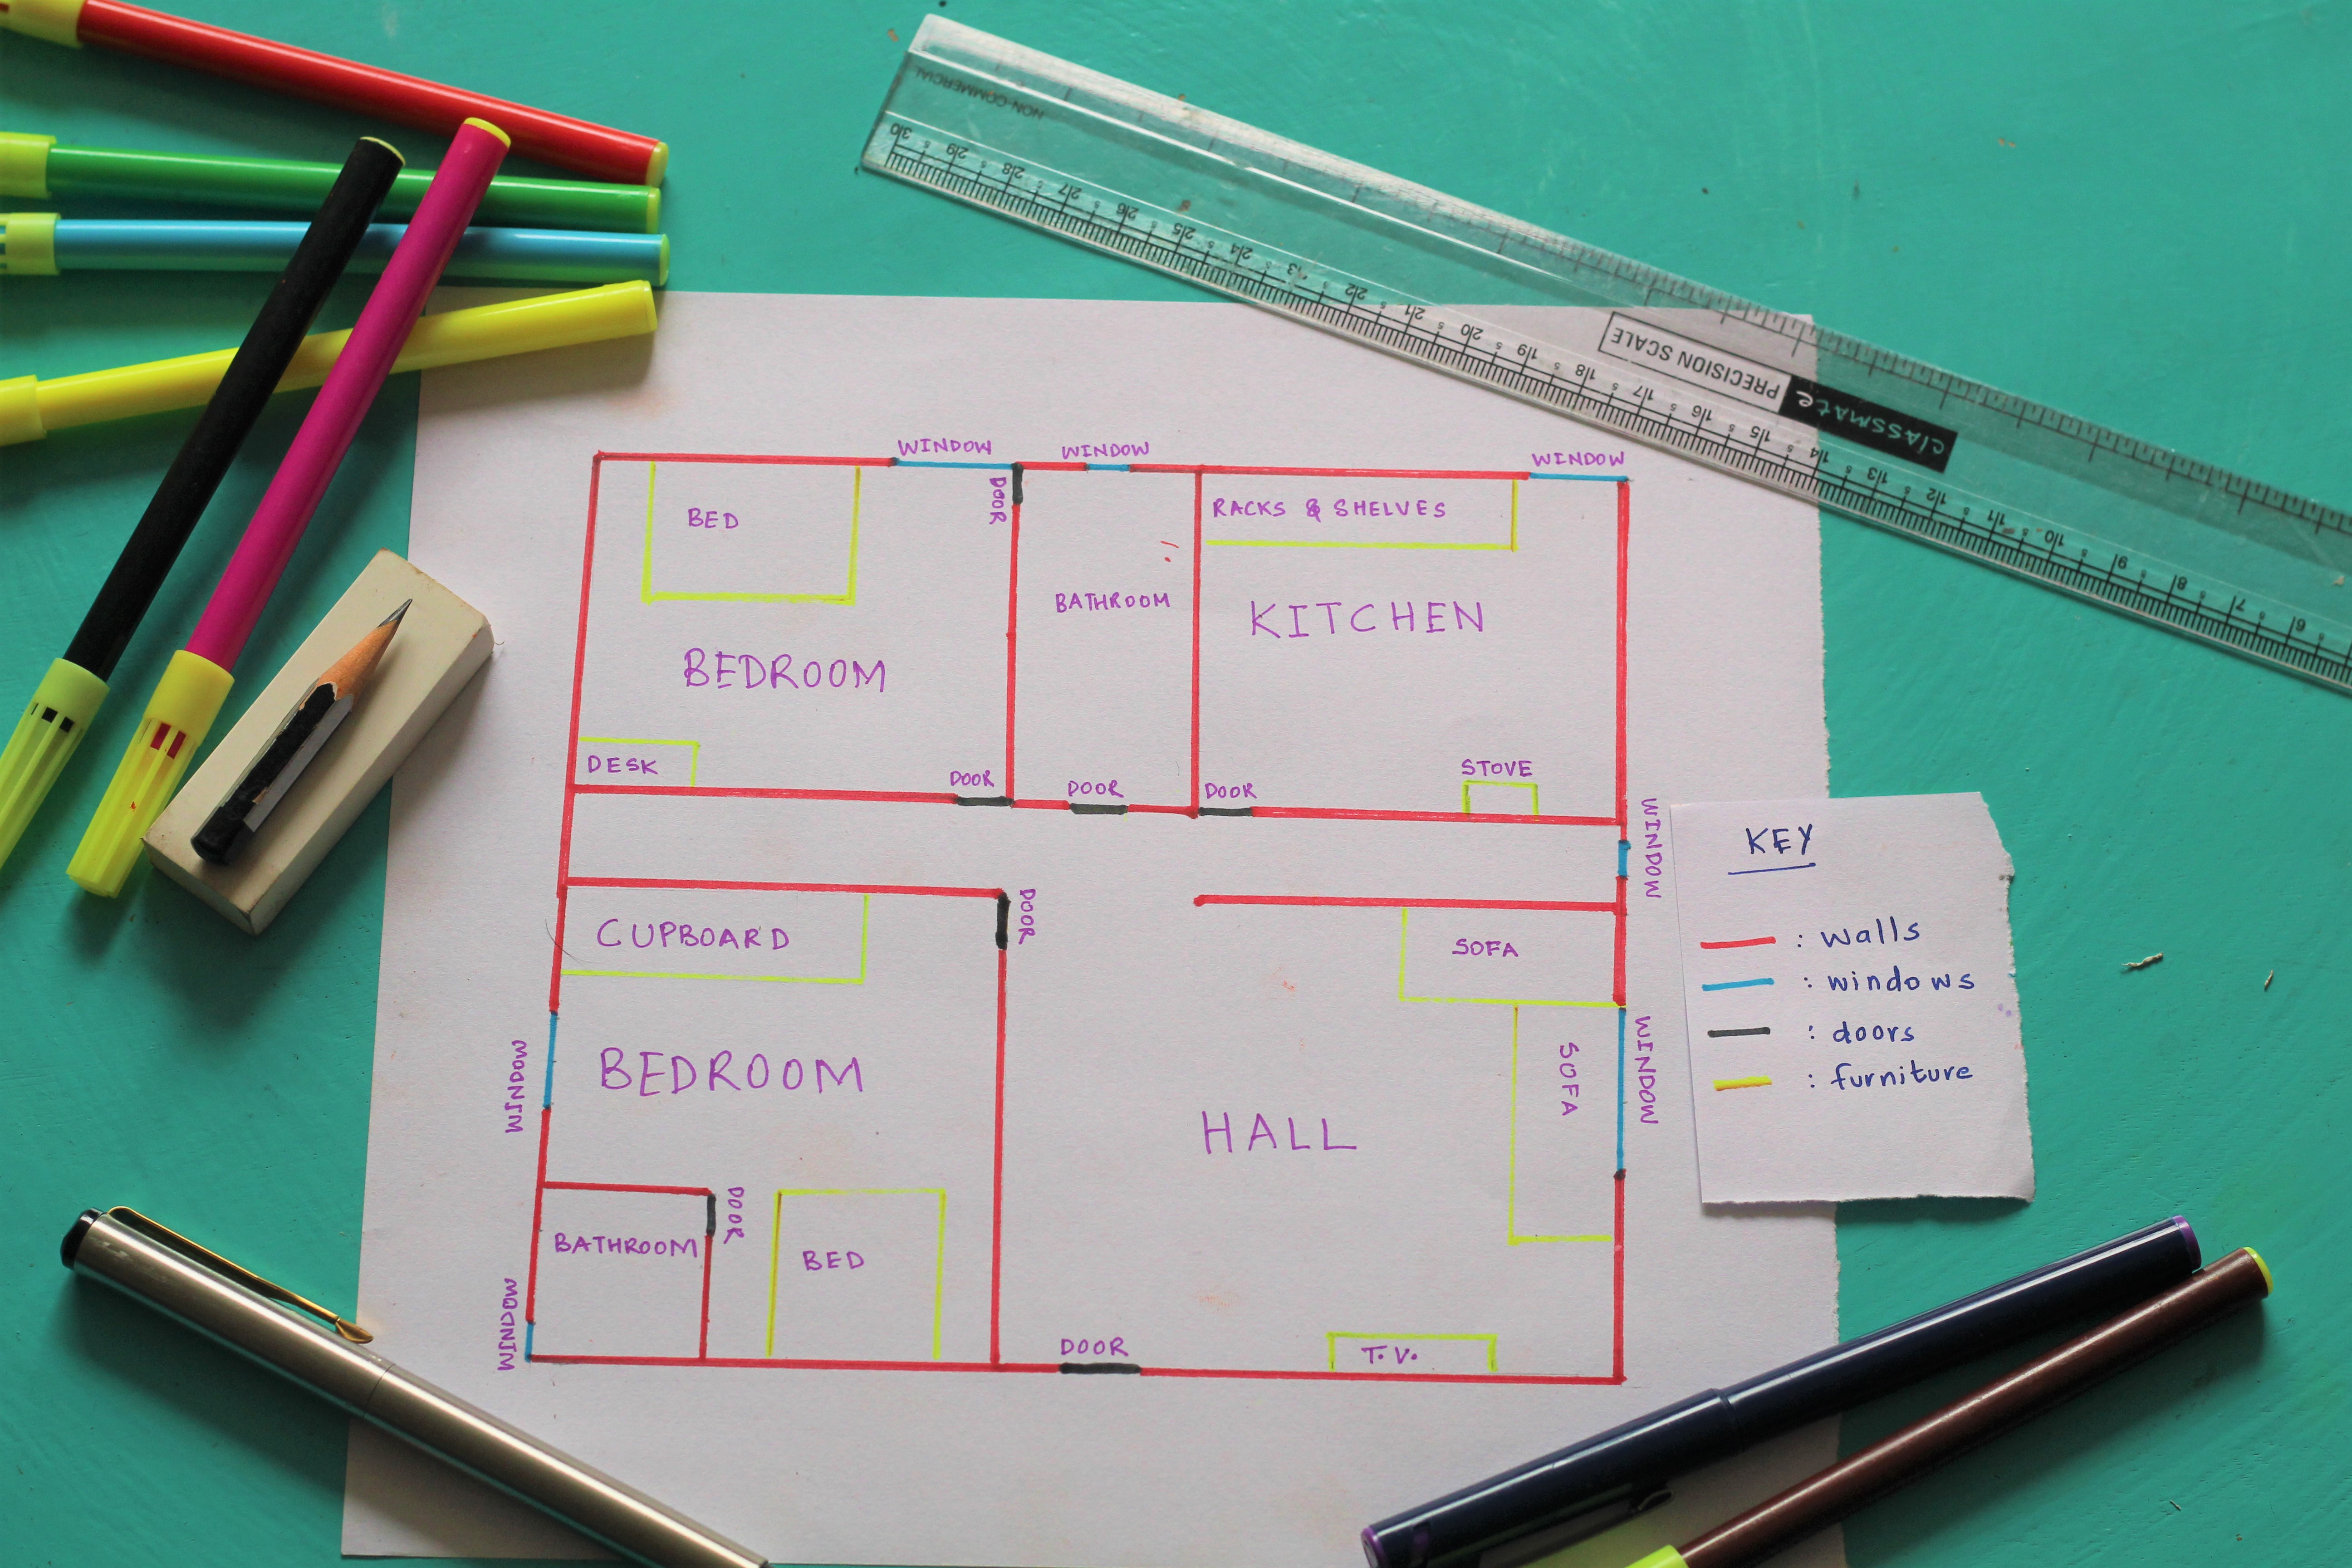 NON-COMMERCIAL
30 29 28 27 26 25 24 23 22 21 20 19 18 17 16 15 14 13 12 11 10 9 8 7 6
PRECISION SCALE
classmate
WINDOW
WINDOW
WINDOW
DOOR
BED
RACKS & SHELVES
BATHROOM
KITCHEN
BEDROOM
DESK
DOOR
DOOR
DOOR
STOVE
WINDOW
CUPBOARD
DOOR
SOFA
SOFA
WINDOW
WINDOW
BEDROOM
HALL
BATHROOM
DOOR
BED
WINDOW
DOOR
T.V.
KEY
: walls
: windows
: doors
: furniture